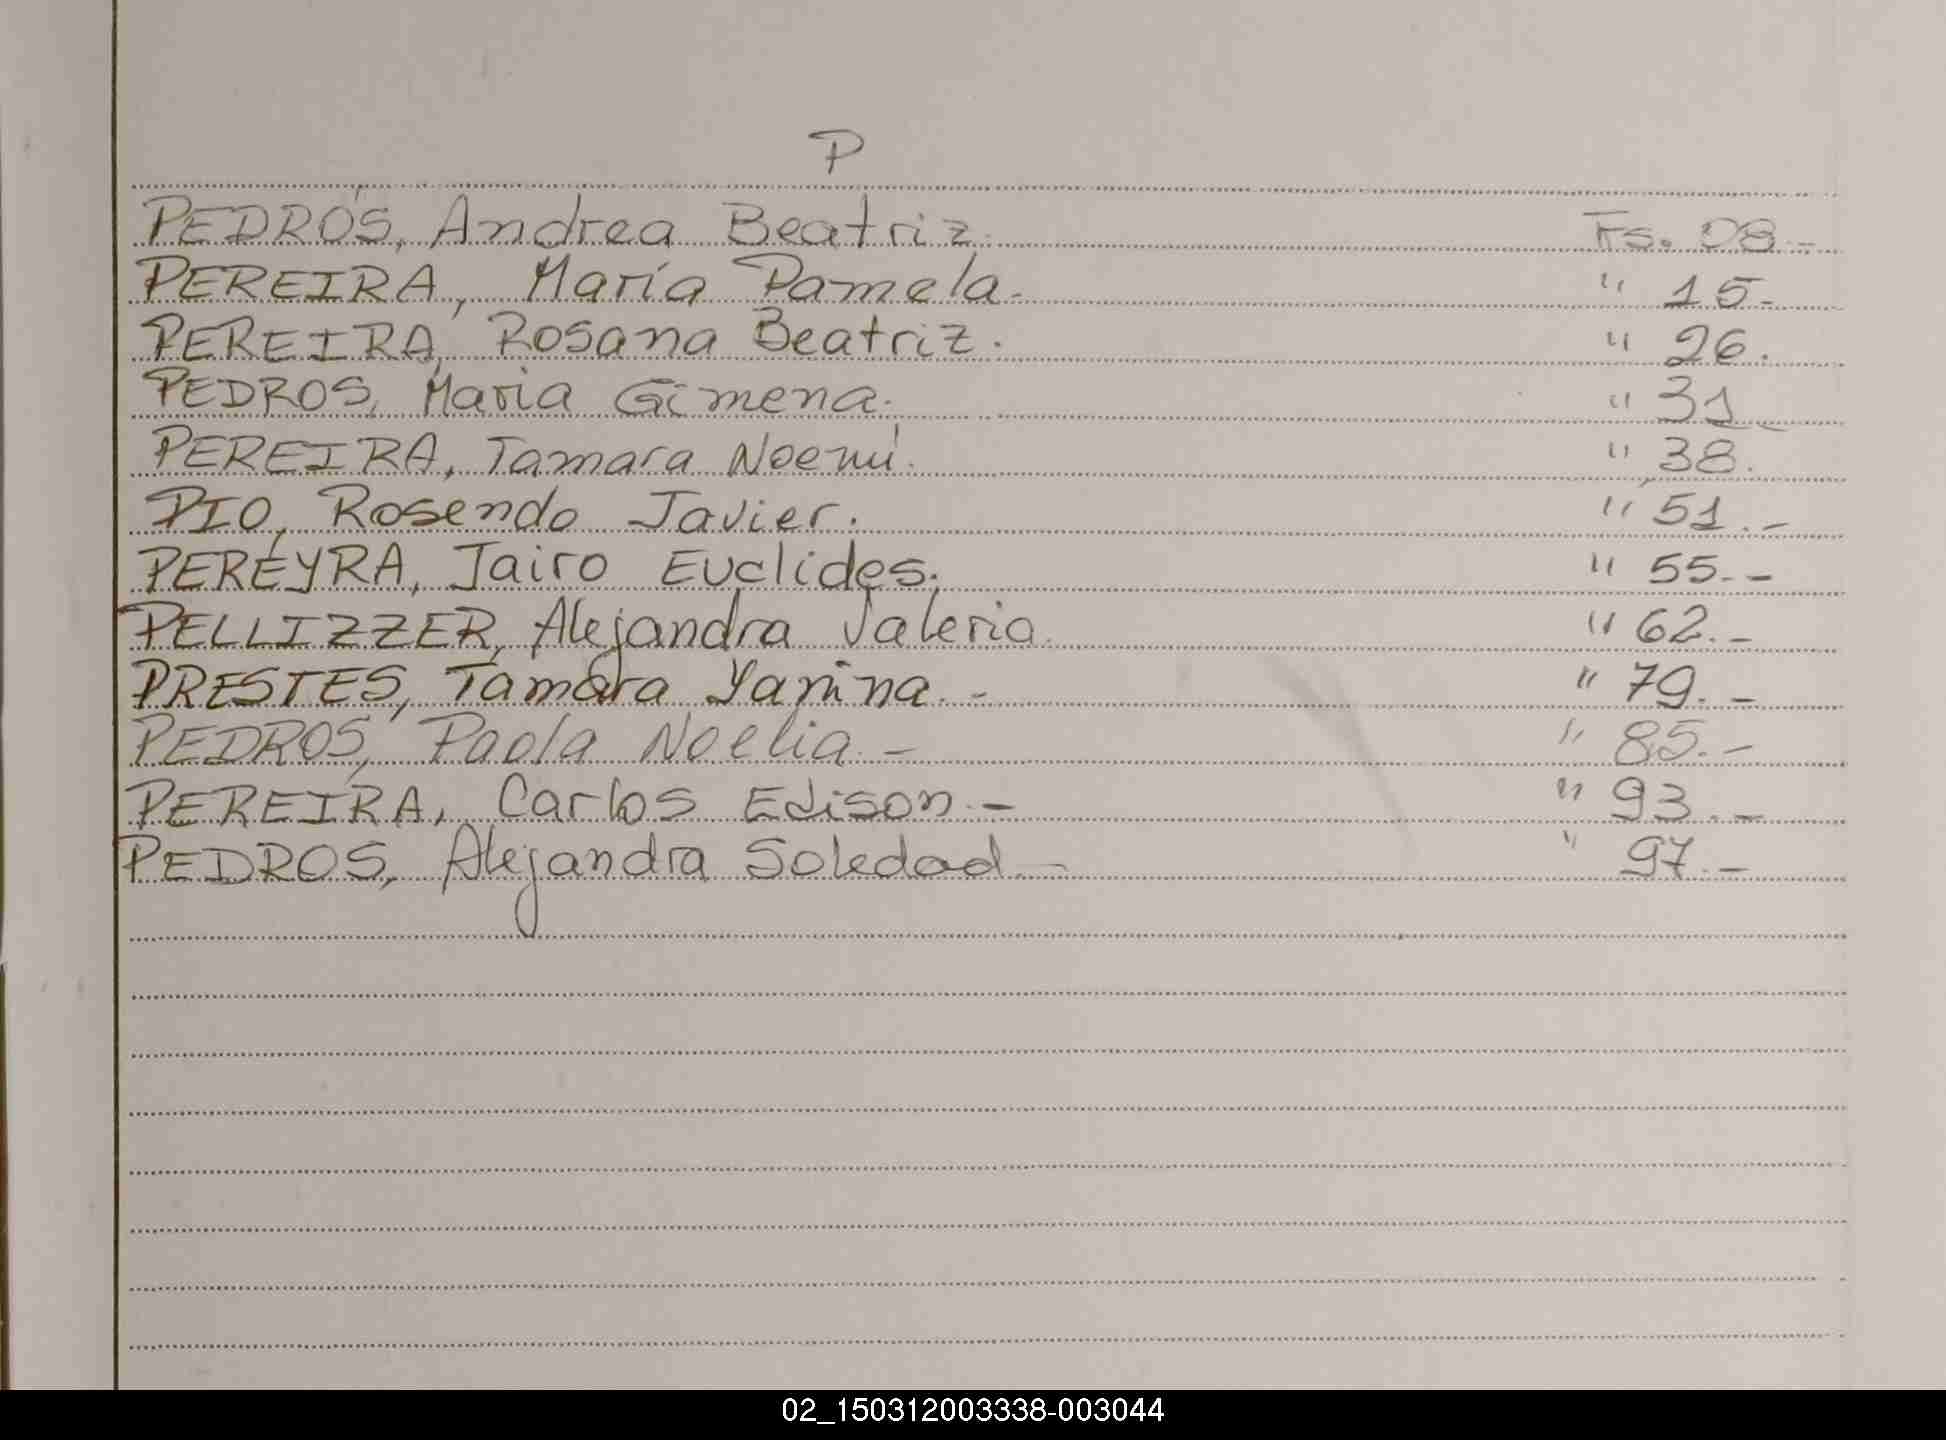 P
PEDRÓS, Andrea Beatriz. Fs. 08.-
PEREIRA, María Pamela. " 15.-
PEREIRA, Rosana Beatriz. " 26.
PEDROS, Maria Gimena. " 31
PEREIRA, Tamara Noemí. " 38.
PIO, Rosendo Javier. " 51.-
PEREYRA, Jairo Euclides. " 55.-
PELLIZZER, Alejandra Valeria. " 62.-
PRESTES, Tamara Yanina.- " 79.-
PEDROS, Paola Noelia.- " 85.-
PEREIRA, Carlos Edison.- " 93.-
PEDROS, Alejandra Soledad.- " 97.-
02_150312003338-003044